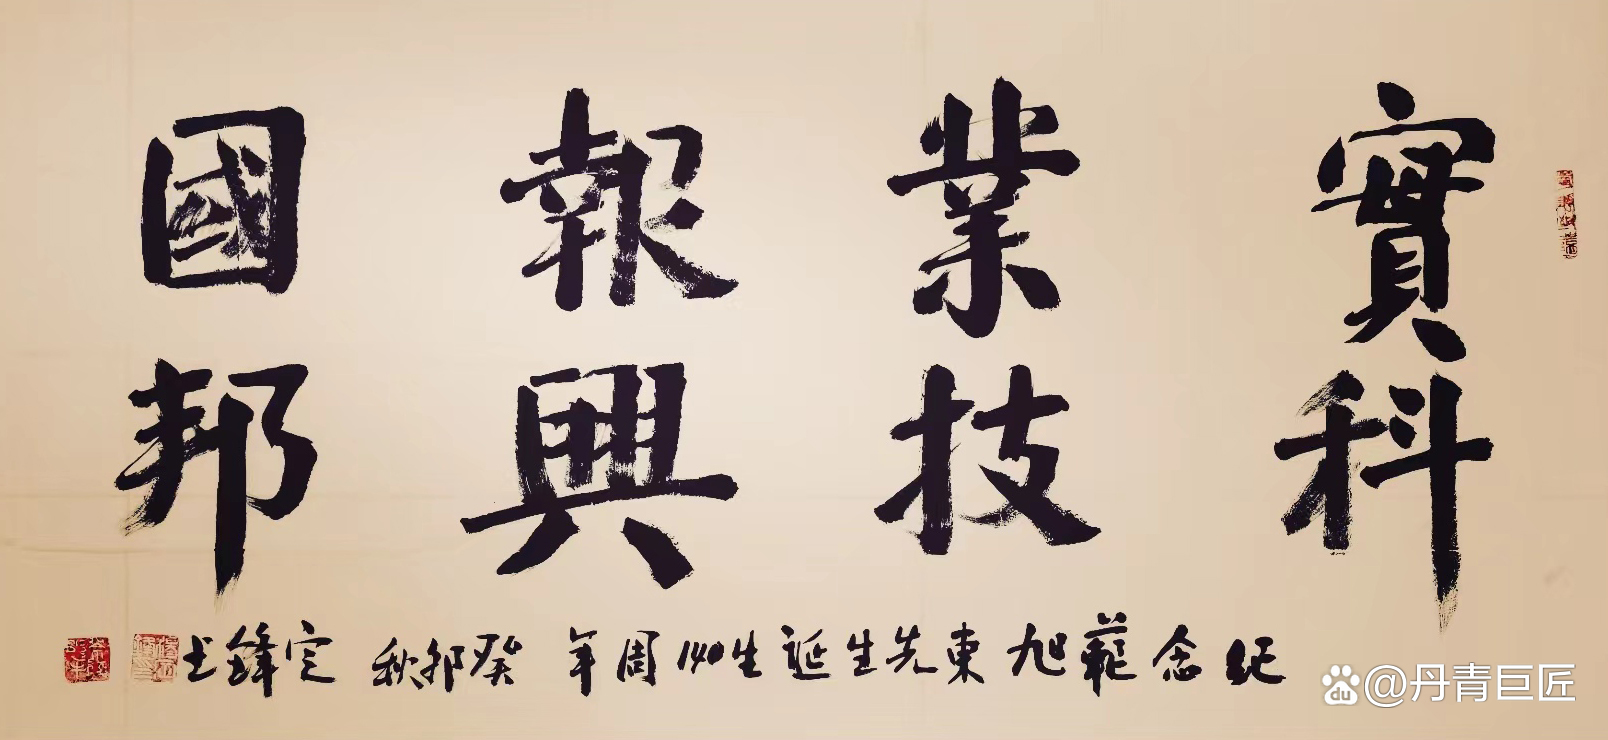 實科
業技
報興
國邦
纪念范旭東先生诞生140周年 癸卯秋 定鋒书
@丹青巨匠